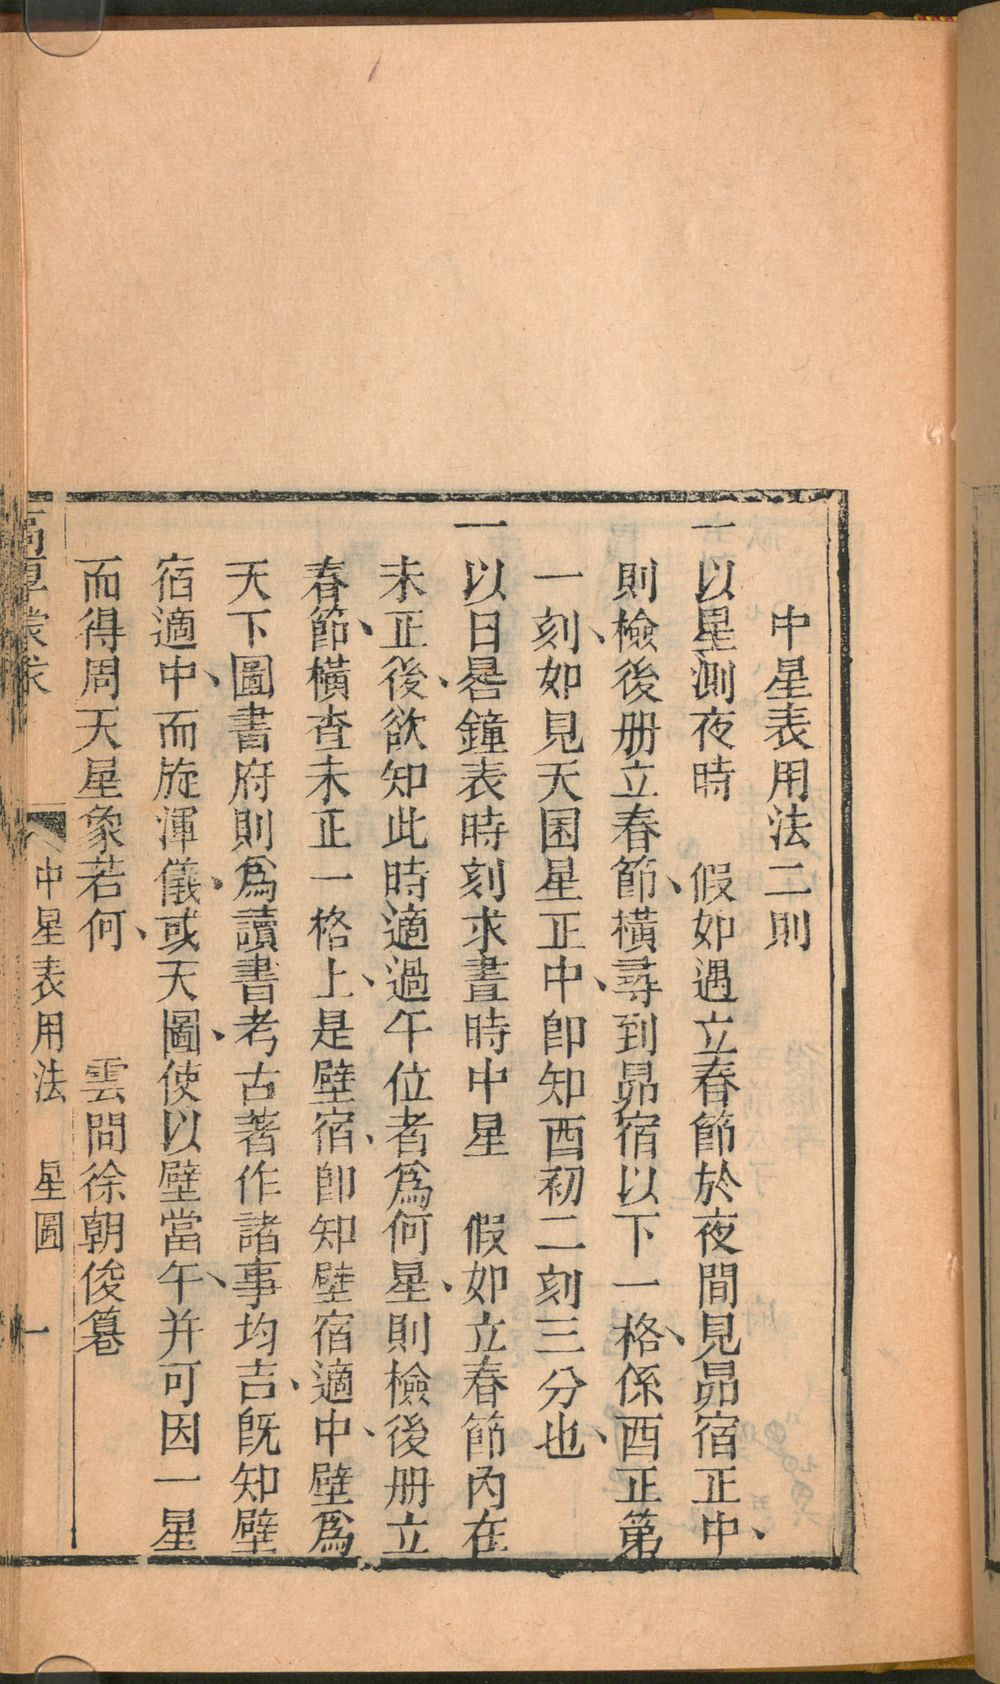 中星表用法二則
一以星測夜時　假如遇立春節於夜間見昴宿正中、
則檢後册立春節、橫尋到昴宿以下一格、係酉正第
一刻、如見天囷星正中、卽知酉初二刻三分也、
一以日晷鐘表時刻求晝時中星　假如立春節內在
未正後、欲知此時適過午位者爲何星、則檢後册立
春節、橫查未正一格上、是壁宿、卽知壁宿適中、壁爲
天下圖書府則爲讀書考古著作諸事均吉、旣知壁
宿適中、而旋渾儀、或天圖、使以壁當午、并可因一星
而得周天星象若何、　雲間徐朝俊篹
高厚蒙求　中星表用法　星圖　一